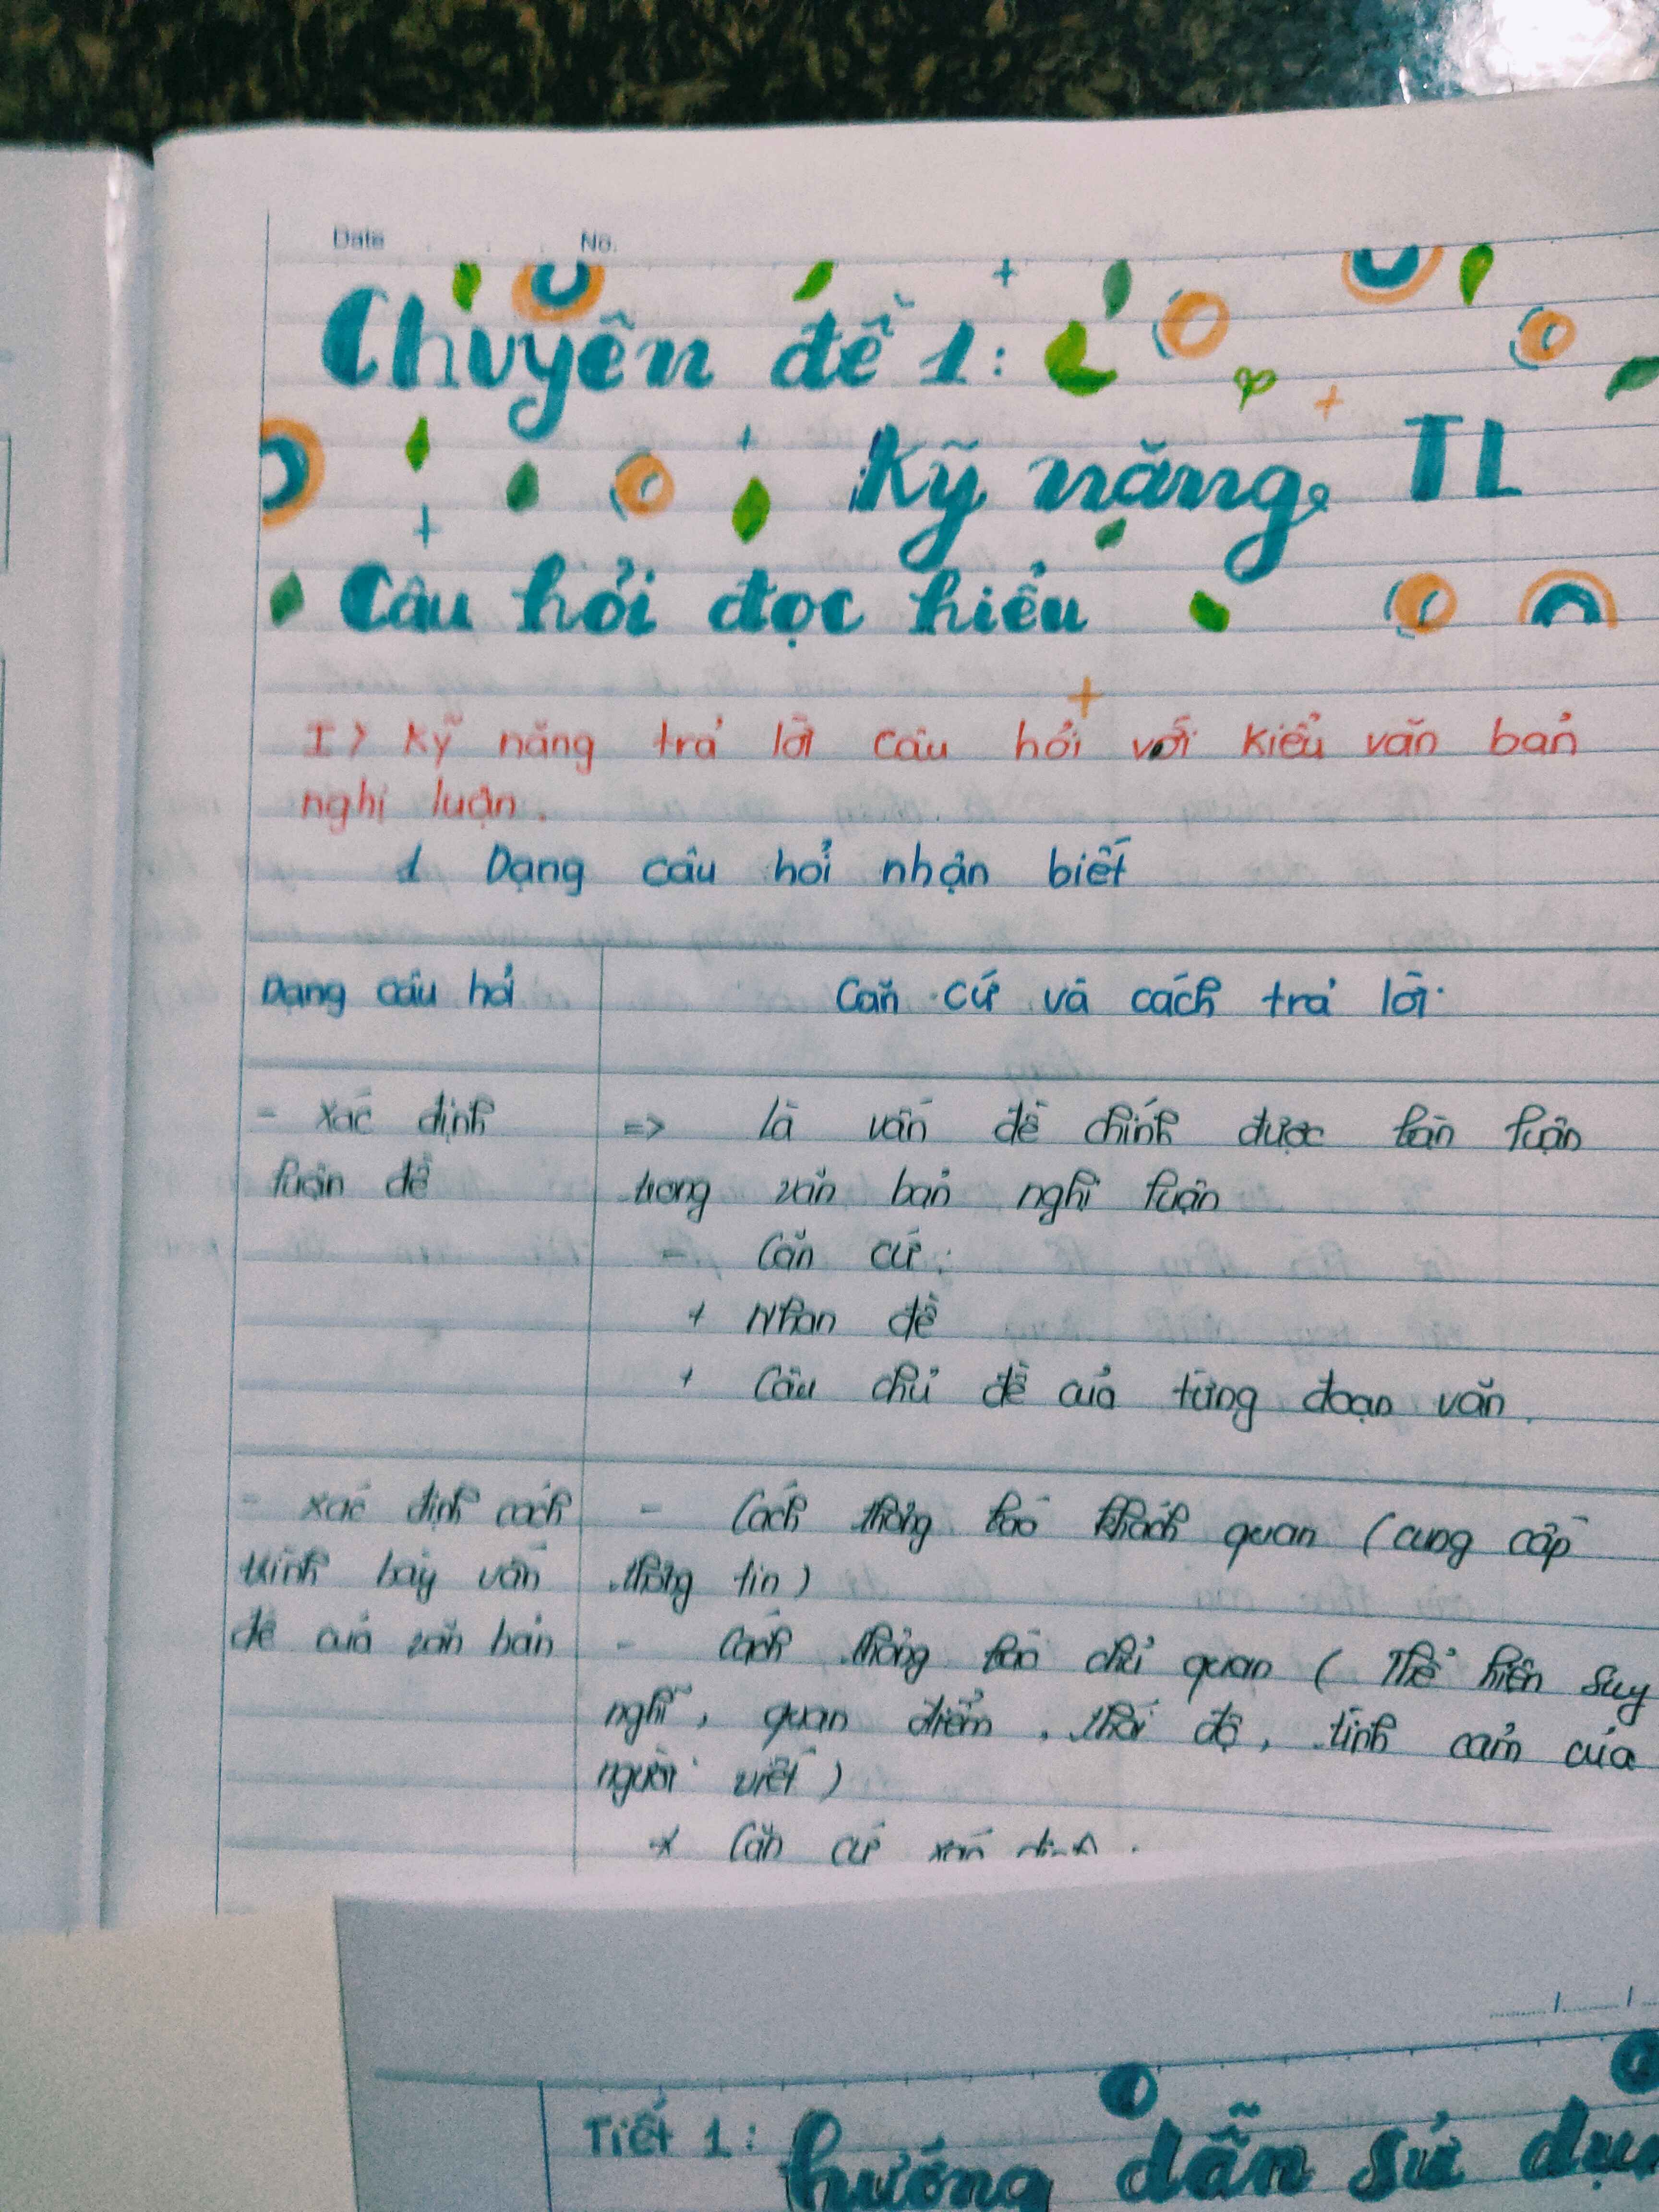 Date No.
Chuyên đề 1:
Kỹ năng TL
Câu hỏi đọc hiểu
I> Kỹ năng trả lời câu hỏi với kiểu văn bản
nghị luận.
1 Dạng câu hỏi nhận biết
Dạng câu hỏi
Căn cứ và cách trả lời
- xác định
luận đề
=> là vấn đề chính được bàn luận
trong văn bản nghị luận
- Căn cứ:
+ Nhan đề
+ Câu chủ đề của từng đoạn văn.
- xác định cách
trình bày vấn
đề của văn bản
- Cách thông báo khách quan (cung cấp
thông tin)
- Cách thông báo chủ quan ( Thể hiện suy
nghĩ, quan điểm, thái độ, tình cảm của
người viết)
* Căn cứ xác định:
Tiết 1: hướng dẫn sử